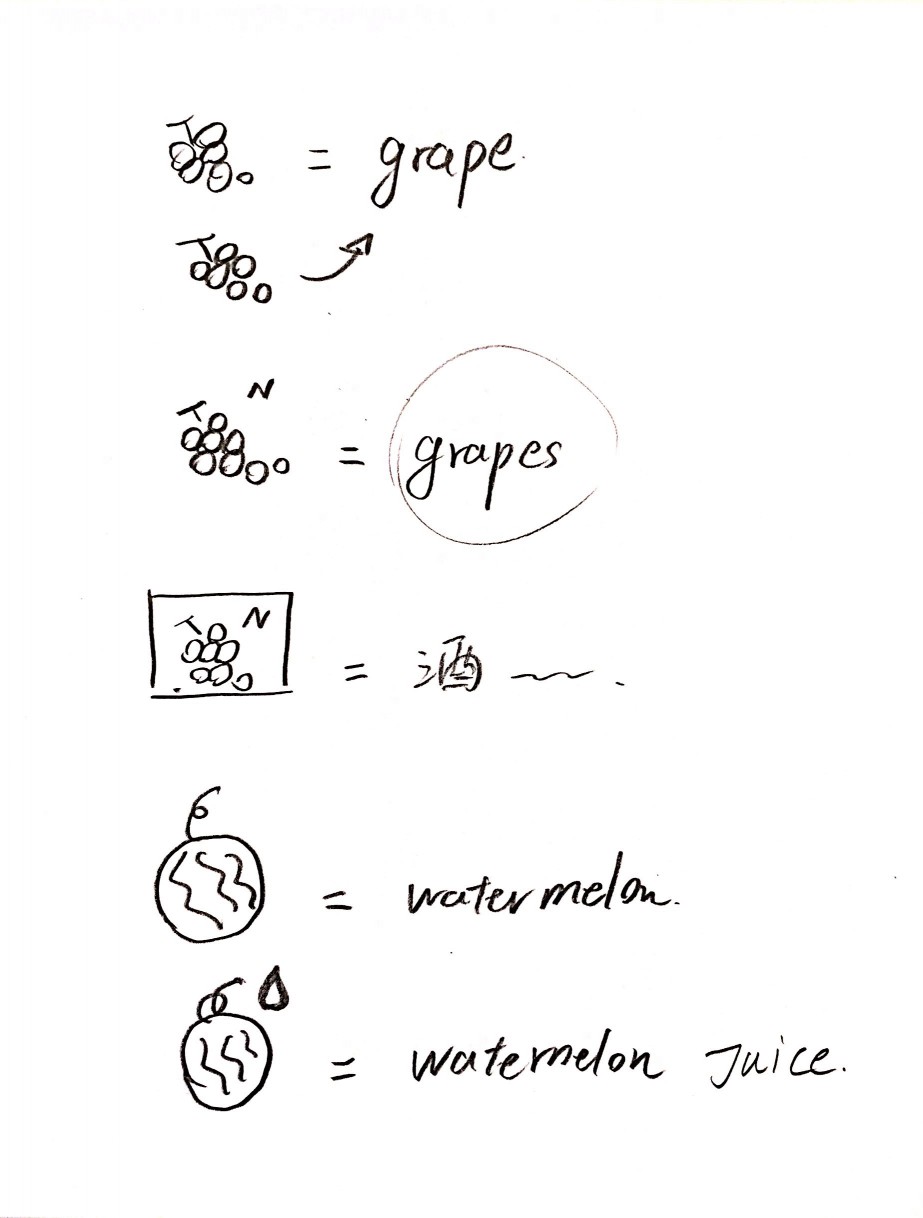 = grape.
N
= grapes
N
= 酒 ~~.
= watermelon.
= watermelon Juice.